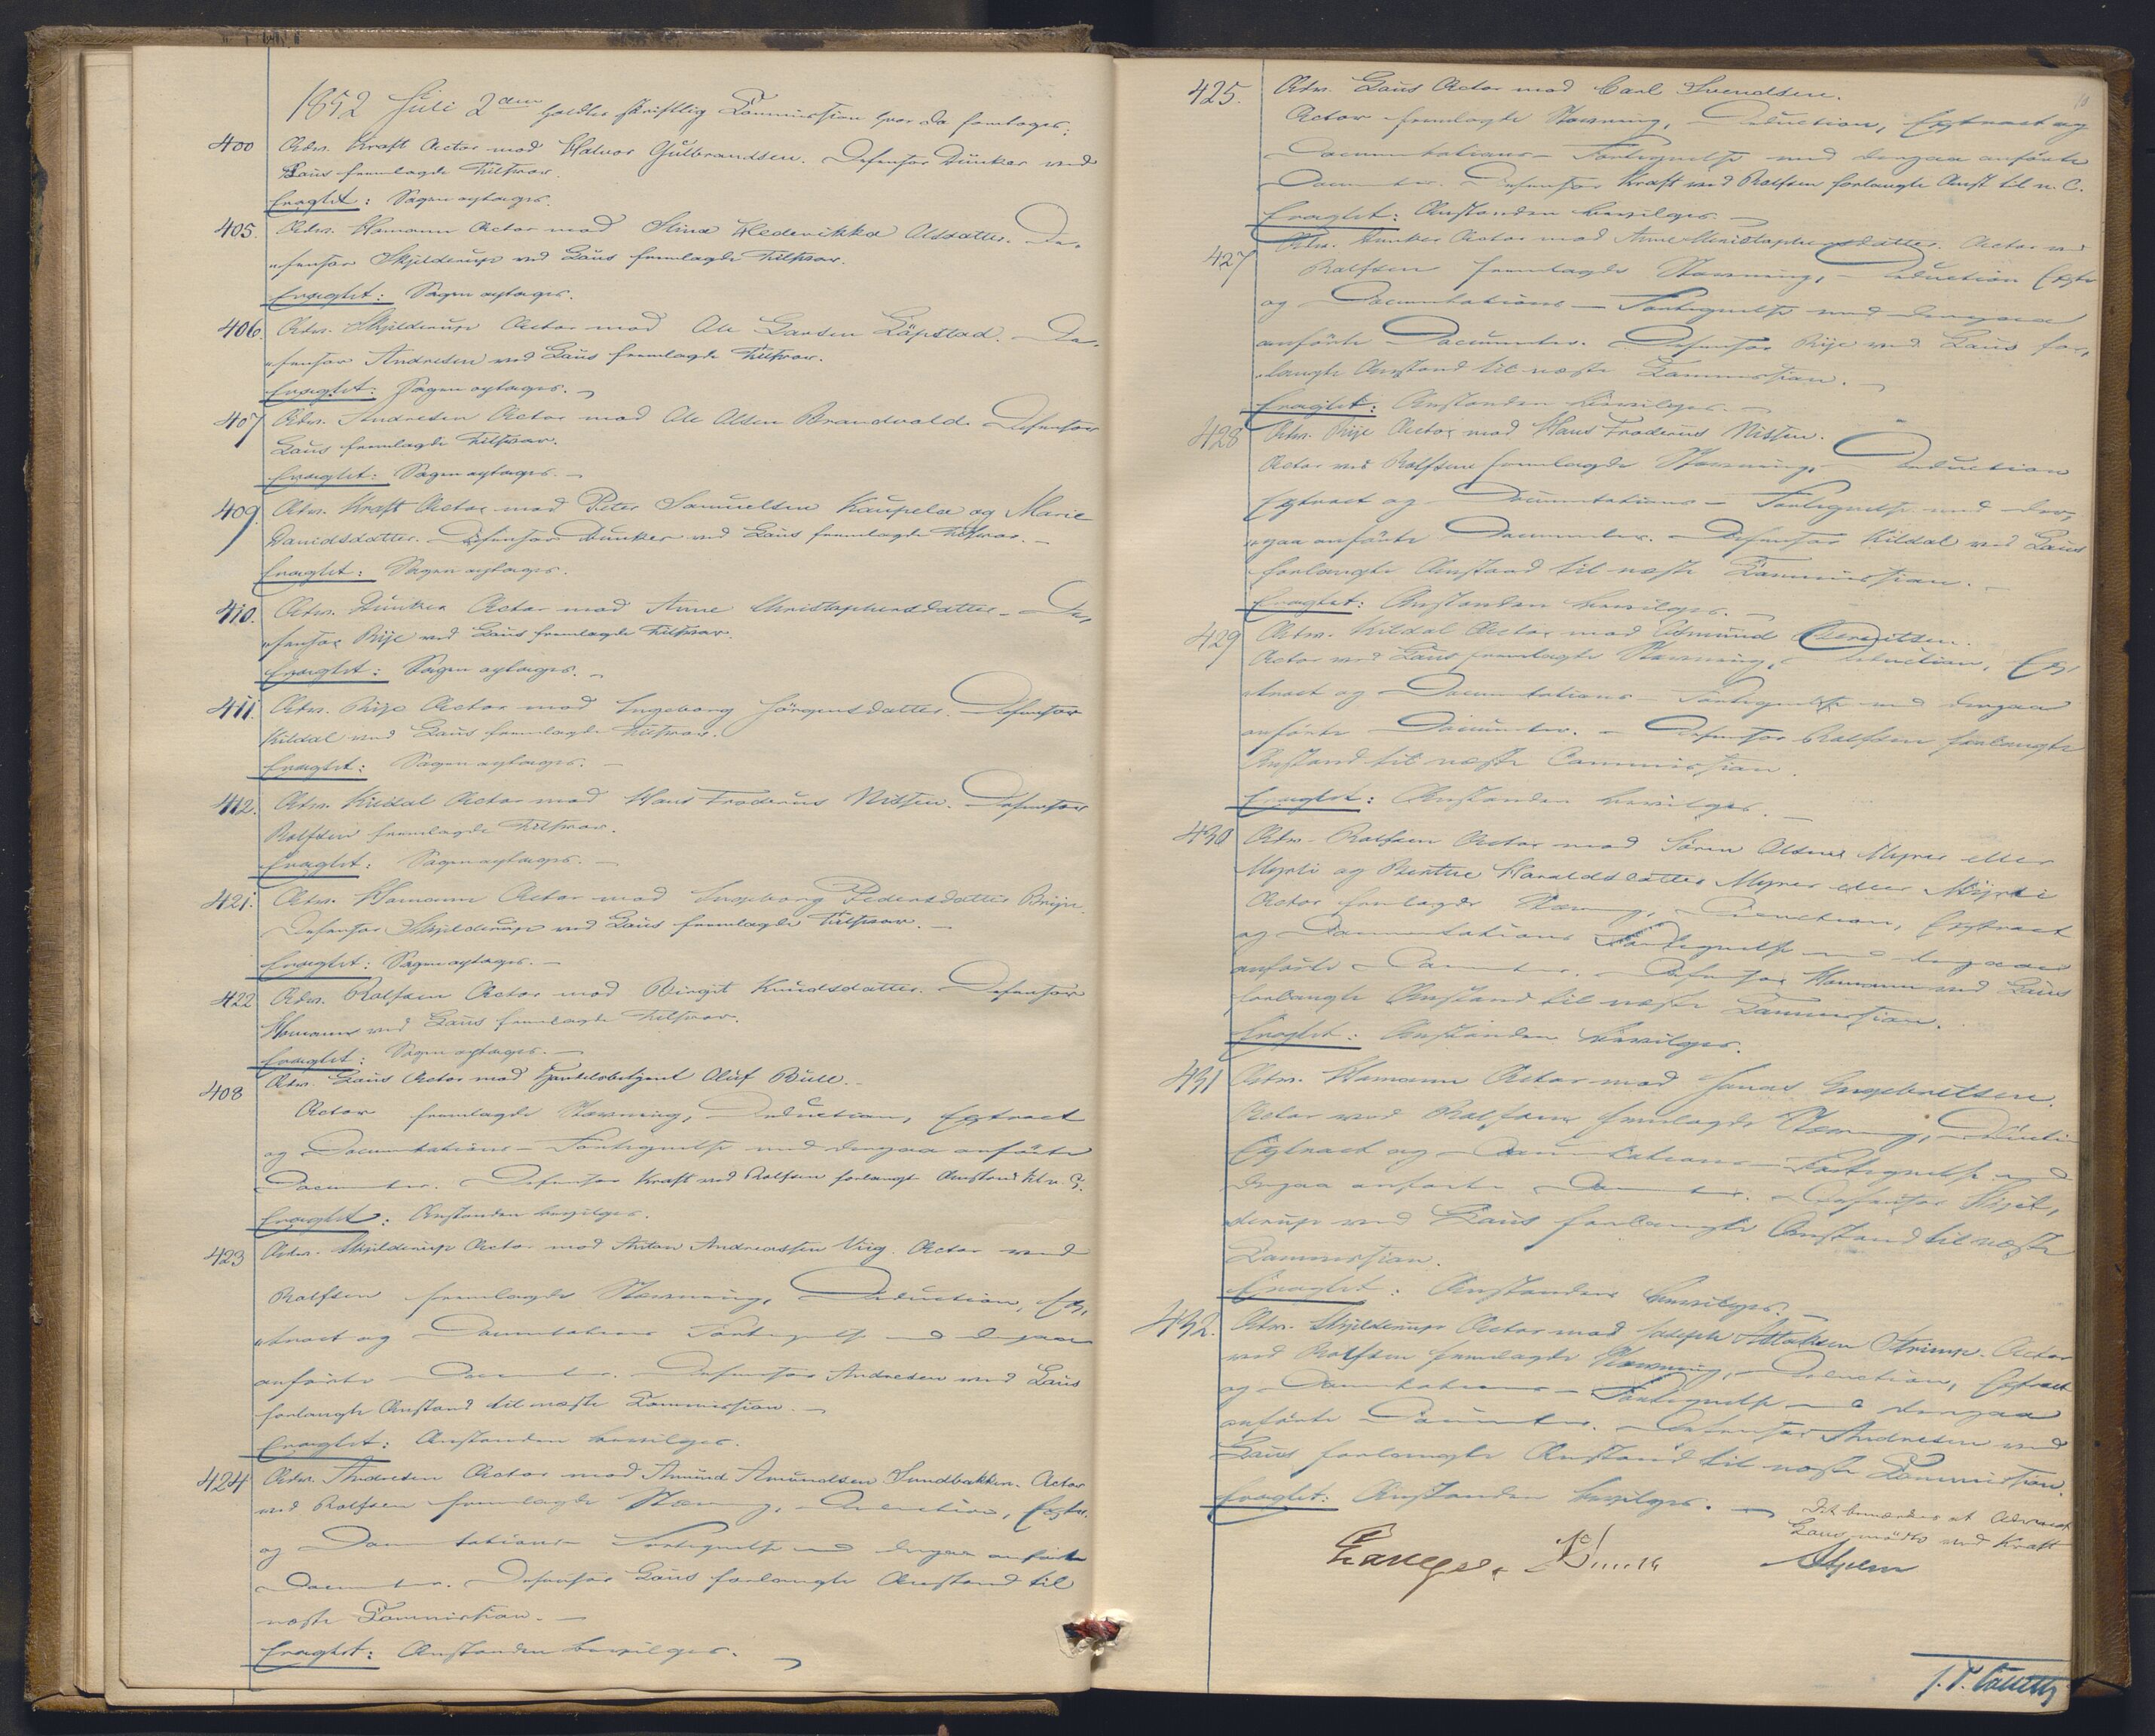 1852 Juli 2den holdtes skriftlig Commission hvor da foretoges:
400 Adv. Kraft Actor mod Halvor Gulbrandsen. Defensor Dunker ved
Laus fremlagde Tilsvar.
Eragtet: Sagen optages.
405. Adv. Homann Actor mod Stina Hedevikka Olsdatter. De-
fensor Skjelderup ved Laus fremlagde Tilsvar.
Eragtet: Sagen optages.
406. Adv. Skjelderup Actor mod Ole Larsen Köpstad. De-
fensor Andresen ved Laus fremlagde Tilsvar.
Eragtet: Sagen optages.
407 Adv. Andresen Actor mod Ole Olsen Brandvold. Defensor
Laus fremlagde Tilsvar.
Eragtet: Sagen optages.
409. Adv. Kraft Actor mod Peter Samuelsen Kaupela og Marie
Davidsdatter. Defensor Dunker ved Laus fremlagde Tilsvar.
Eragtet: Sagen optages.
410. Adv. Dunker Actor mod Anne Christophersdatter. De-
fensor Rije ved Laus fremlagde Tilsvar.
Eragtet: Sagen optages.
411. Adv. Rije Actor mod Ingeborg Jörgensdatter. Defensor
Kildal ved Laus fremlagde Tilsvar.
Eragtet: Sagen optages.
412. Adv. Kildal Actor mod Hans Froderus Nissen. Defensor
Rolfsen fremlagde Tilsvar.
Eragtet: Sagen optages.
421. Adv. Homann Actor mod Ingeborg Pedersdatter
Defensor Skjelderup ved Laus fremlagde Tilsvar.
Eragtet: Sagen optages.
422 Adv. Rolfsen Actor mod Birgit Knudsdatter. Defensor
Homann ved Laus fremlagde Tilsvar.
Eragtet: Sagen optages.
408 Adv. Laus Actor mod Oluf Bull.
Actor fremlagde Stævning, Deduction, Extract
og Documentations-Fortegnelse med derpaa anförte
Documenter. Defensor Kraft ved Rolfsen forlangte Anstand til n. C.
Eragtet: Anstanden bevilges.
423 Adv. Skjelderup Actor mod Anton Andreassen Viig. Actor ved
Rolfsen fremlagde Stævning, Deduction, Ex-
tract og Documentations Fortegnelse med derpaa
anförte Documenter. Defensor Andresen ved Laus
forlangte Anstand til næste Commission.
Eragtet: Anstanden bevilges.
424 Adv. Andresen Actor mod Amund Amundsen Sundbakken. Actor
ved Rolfsen fremlagde Stævning, Deduction, Extr.
og Documentations Fortegnelse med derpaa anförte
Documenter. Defensor Laus forlangte Anstand til
næste Commission.
Eragtet: Anstanden bevilges.
425. Adv. Laus Actor mod Carl Svendsen.
Actor fremlagde Stævning, Deduction, Extract og
Documentations-Fortegnelse med derpaa anförte
Documenter. Defensor Kraft ved Rolfsen forlangte Anst til n. C.
Eragtet: Anstanden bevilges.
427 Adv. Dunker Actor mod Anne Christophersdatter. Actor ved
Rolfsen fremlagde Stævning, Deduction Extr
og Documentations-Fortegnelse med derpaa
anförte Documenter. Defensor Rije ved Laus for-
langte Anstand til næste Commission.
Eragtet: Anstanden bevilges.
428 Adv. Rije Actor mod Hans Froderus Nissen.
Actor ved Rolfsen fremlagde Stævning, Deduction
Extract og Documentations-Fortegnelse med der-
paa anförte Documenter. Defensor Kildal ved Laus
forlangte Anstand til næste Commission.
Eragtet: Anstanden bevilges.
429 Adv. Kildal Actor mod Asmund
Actor ved Laus fremlagde Stævning, Deduction, Ex-
tract og Documentations-Fortegnelse med derpaa
anförte Documenter. Defensor Rolfsen forlangte
Anstand til næste Commission.
Eragtet: Anstanden bevilges.
430 Adv. Rolfsen Actor mod Sören Olsen Myrer eller
Myrli og Berthe Haraldsdatter Myrer eller Myrli
Actor fremlagde Stævning, Deduction, Extract
og Documentations Fortegnelse med derpaa
anförte Documenter. Defensor Homann ved Laus
forlangte Anstand til næste Commission.
Eragtet: Anstanden bevilges.
431 Adv. Homann Actor mod Jonas Engebretsen.
Actor ved Rolfsen fremlagde Stævning, Deduction
Extract og Documentations-Fortegnelse med
derpaa anförte Documenter. Defensor Skjel-
derup ved Laus forlangte Anstand til næste
Commission.
Eragtet: Anstanden bevilges.
432. Adv. Skjelderup Actor mod Actor
ved Rolfsen fremlagde Stævning, Deduction, Extract
og Documentations-Fortegnelse med derpaa
anförte Documenter. Defensor Andresen ved
Laus forlangte Anstand til næste Commission.
Eragtet: Anstanden bevilges.
Det bemærkes at Advocat
Laus mödte ved Kraft